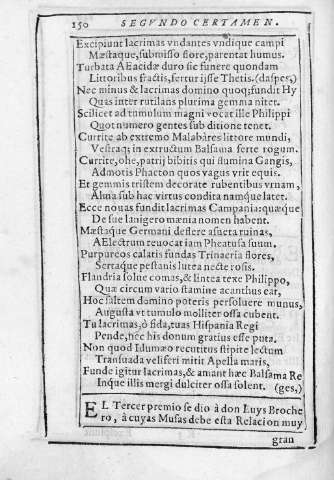 150 SEGVNDO CERTAMEN.
Excipiunt lacrimas vndantes vndique campi
Mæstaque, submisso flore, parentat humus.
Turbata AEacidæ duro sic funere quondam
Littoribus fractis, fertur ijsse Thetis. (daspes,)
Nec minus & lacrimas domino quoq; fundit Hy
Quas inter rutilans plurima gemma nitet.
Scilicet ad tumulum magni vocat ille Philippi
Quot numero gentes sub ditione tenet.
Currite ab extremo Malabares littore mundi,
Vestraq; in extructum Balsama ferte rogum.
Currite, ohe, patrij bibitis qui flumina Gangis,
Admotis Phæton quos vagus vrit equis.
Et gemmis tristem decorate rubentibus vrnam,
Alma sub hac virtus condita namque latet.
Ecce nouas fundit lacrimas Campania: quæque
De sue lanigero mænia nomen habent.
Mæstaque Germani deflere asueta ruinas,
AElectrum reuocat iam Pheatusa suum.
Purpureos calatis fundas Trinacria flores,
Sertaque pestanis lutea necte rosis.
Flandria solue comas, & lintea texe Philippo,
Quæ circum vario stamine acanthus eat,
Hoc saltem domino poteris persoluere munus,
Augusta vt tumulo molliter ossa cubent.
Tu lacrimas, ò fida, tuas Hispania Regi
Pende, nec his donum gratius esse puta.
Non quod Idumæo recutitus stipite lectum
Transuada veliferi mitit Apella maris,
Funde igitur lacrimas, & amant hæc Balsama Re
Inque illis mergi dulciter ossa solent. (ges,)
EL Tercer premio se dio à don Luys Broche
ro, à cuyas Musas debe esta Relacion muy
gran